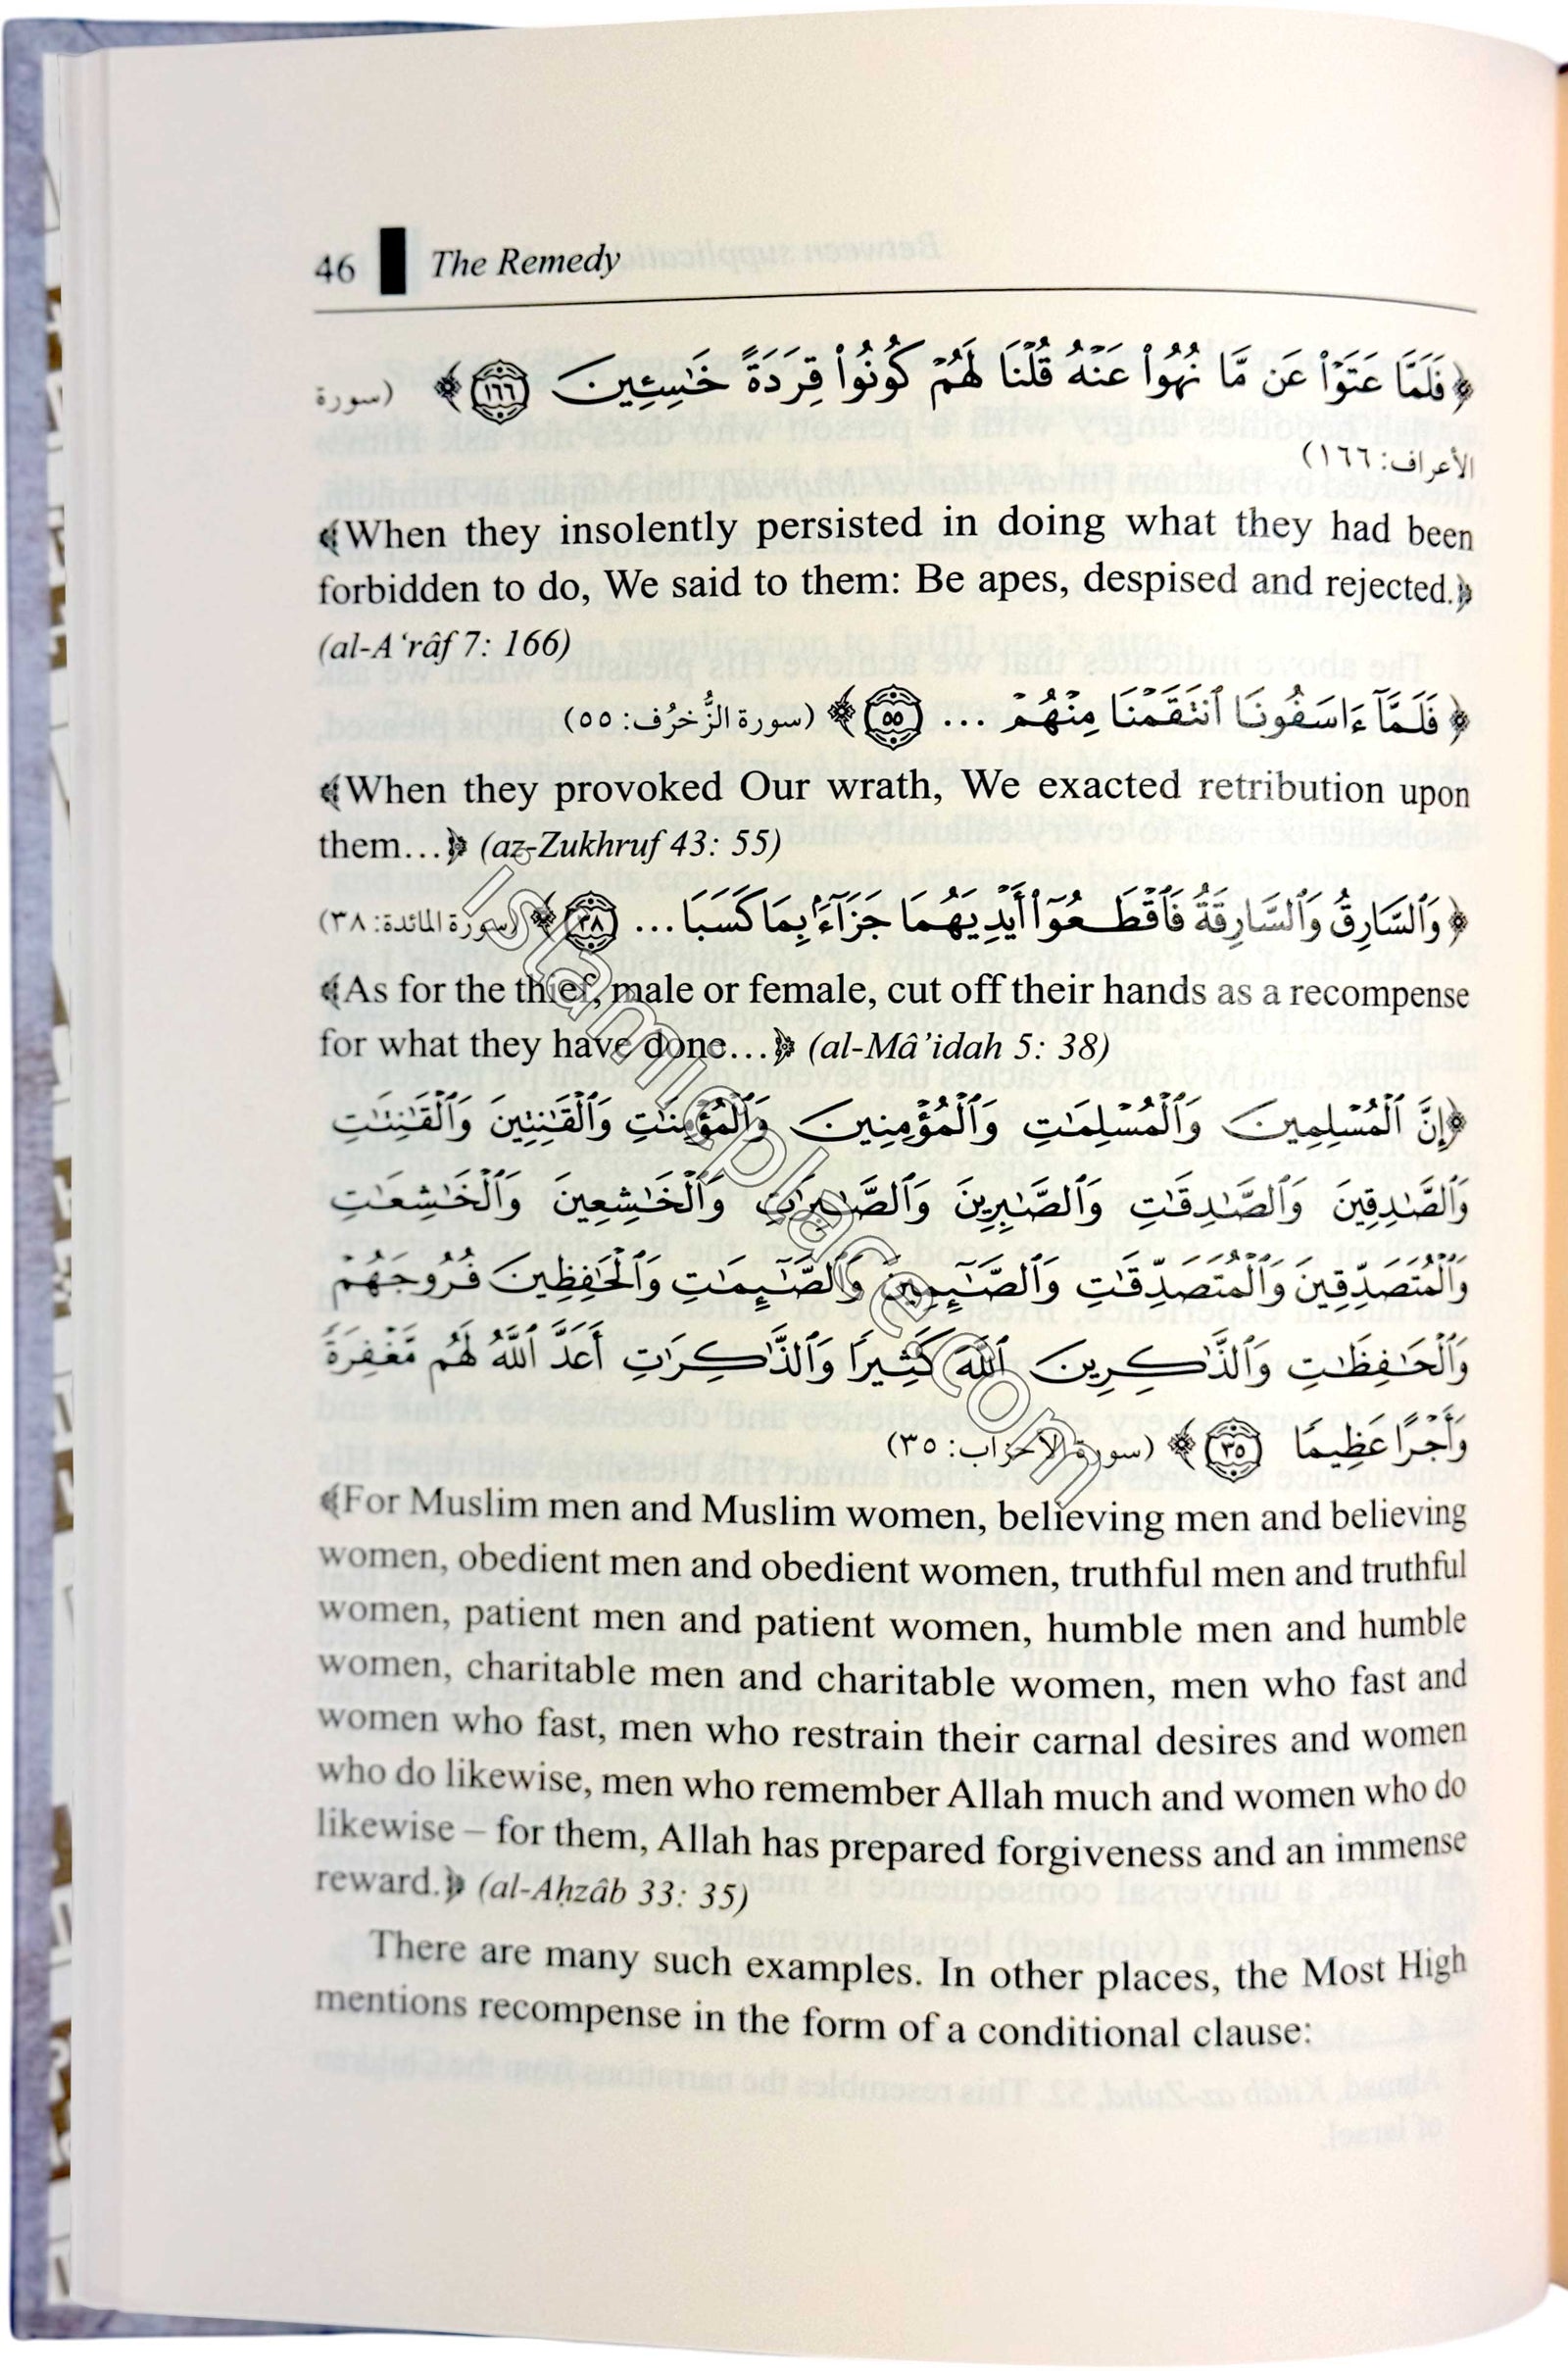 46 The Remedy
﴿فَلَمَّا عَتَوْا۟ عَن مَّا نُهُوا۟ عَنْهُ قُلْنَا لَهُمْ كُونُوا۟ قِرَدَةً خَـٰسِـِٔينَ ١٦٦﴾ (سورة
الأعراف: ١٦٦)
﴾When they insolently persisted in doing what they had been
forbidden to do, We said to them: Be apes, despised and rejected.﴿
(al-A‘râf 7: 166)
﴿فَلَمَّآ ءَاسَفُونَا ٱنتَقَمْنَا مِنْهُمْ ... ٥٥﴾ (سورة الزُّخرُف: ٥٥)
﴾When they provoked Our wrath, We exacted retribution upon
them…﴿ (az-Zukhruf 43: 55)
﴿وَٱلسَّارِقُ وَٱلسَّارِقَةُ فَٱقْطَعُوٓا۟ أَيْدِيَهُمَا جَزَآءًۢ بِمَا كَسَبَا... ٣٨﴾ (سورة المائدة: ٣٨)
﴾As for the thief, male or female, cut off their hands as a recompense
for what they have done…﴿ (al-Mâ’idah 5: 38)
﴿إِنَّ ٱلْمُسْلِمِينَ وَٱلْمُسْلِمَـٰتِ وَٱلْمُؤْمِنِينَ وَٱلْمُؤْمِنَـٰتِ وَٱلْقَـٰنِتِينَ وَٱلْقَـٰنِتَـٰتِ
وَٱلصَّـٰدِقِينَ وَٱلصَّـٰدِقَـٰتِ وَٱلصَّـٰبِرِينَ وَٱلصَّـٰبِرَٰتِ وَٱلْخَـٰشِعِينَ وَٱلْخَـٰشِعَـٰتِ
وَٱلْمُتَصَدِّقِينَ وَٱلْمُتَصَدِّقَـٰتِ وَٱلصَّـٰٓئِمِينَ وَٱلصَّـٰٓئِمَـٰتِ وَٱلْحَـٰفِظِينَ فُرُوجَهُمْ
وَٱلْحَـٰفِظَـٰتِ وَٱلذَّٰكِرِينَ ٱللَّهَ كَثِيرًا وَٱلذَّٰكِرَٰتِ أَعَدَّ ٱللَّهُ لَهُم مَّغْفِرَةً
وَأَجْرًا عَظِيمًا ٣٥﴾ (سورة الأحزاب: ٣٥)
﴾For Muslim men and Muslim women, believing men and believing
women, obedient men and obedient women, truthful men and truthful
women, patient men and patient women, humble men and humble
women, charitable men and charitable women, men who fast and
women who fast, men who restrain their carnal desires and women
who do likewise, men who remember Allah much and women who do
likewise – for them, Allah has prepared forgiveness and an immense
reward.﴿ (al-Aḥzâb 33: 35)
There are many such examples. In other places, the Most High
mentions recompense in the form of a conditional clause:
islamicplace.com